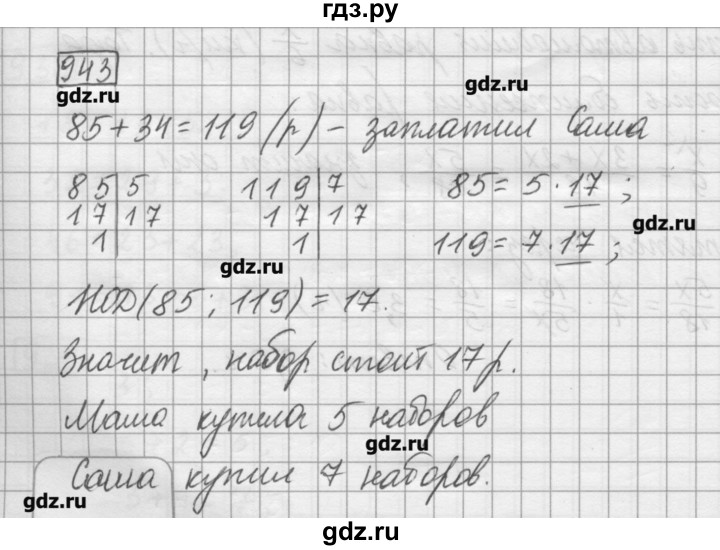 гдз.ру
943
gdz.ru
gdz.ru
85+34=119 (р) – заплатил Саша
85|5 119|7 85=5·17;
17|17 17|17 gdz.ru
1| 1| 119=7·17;
gdz.ru
НОД(85; 119)=17.
Значит, набор стоит 17 р.
Маша купила 5 наборов
gdz.ru
Саша купил 7 наборов.
gdz.ru
gdz.ru